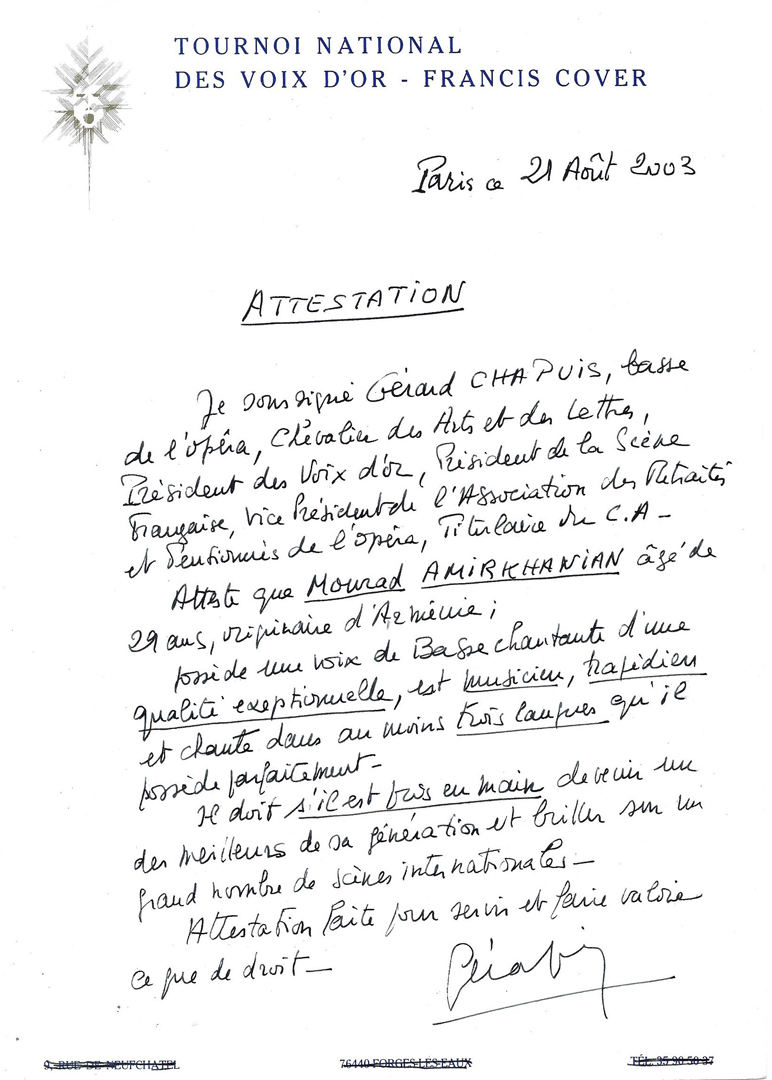 TOURNOI NATIONAL
DES VOIX D'OR - FRANCIS COVER
Paris ce 21 Août 2003
ATTESTATION
Je soussigné Gérard CHAPUIS, basse
de l'opéra, Chevalier des Arts et des Lettres,
Président des Voix d'or, Président de la Scène
Française, Vice Président de l'Association des Retraités
et Pensionnés de l'opéra, Titulaire du C.A -
Atteste que Mourad AMIRKHANIAN âgé de
29 ans, originaire d'Arménie ;
possède une voix de Basse chantante d'une
qualité exeptionnelle, est musicien, tragédien
et chante dans au moins trois langues qu'il
possède parfaitement -
Il doit s'il est pris en main devenir un
des meilleurs de sa génération et briller sur un
grand nombre de scènes internationales -
Attestation faite pour servir et faire valoir
ce que de droit -
9, RUE DE NEUFCHATEL 76440 FORGES-LES-EAUX TÉL. 35 90 50 37